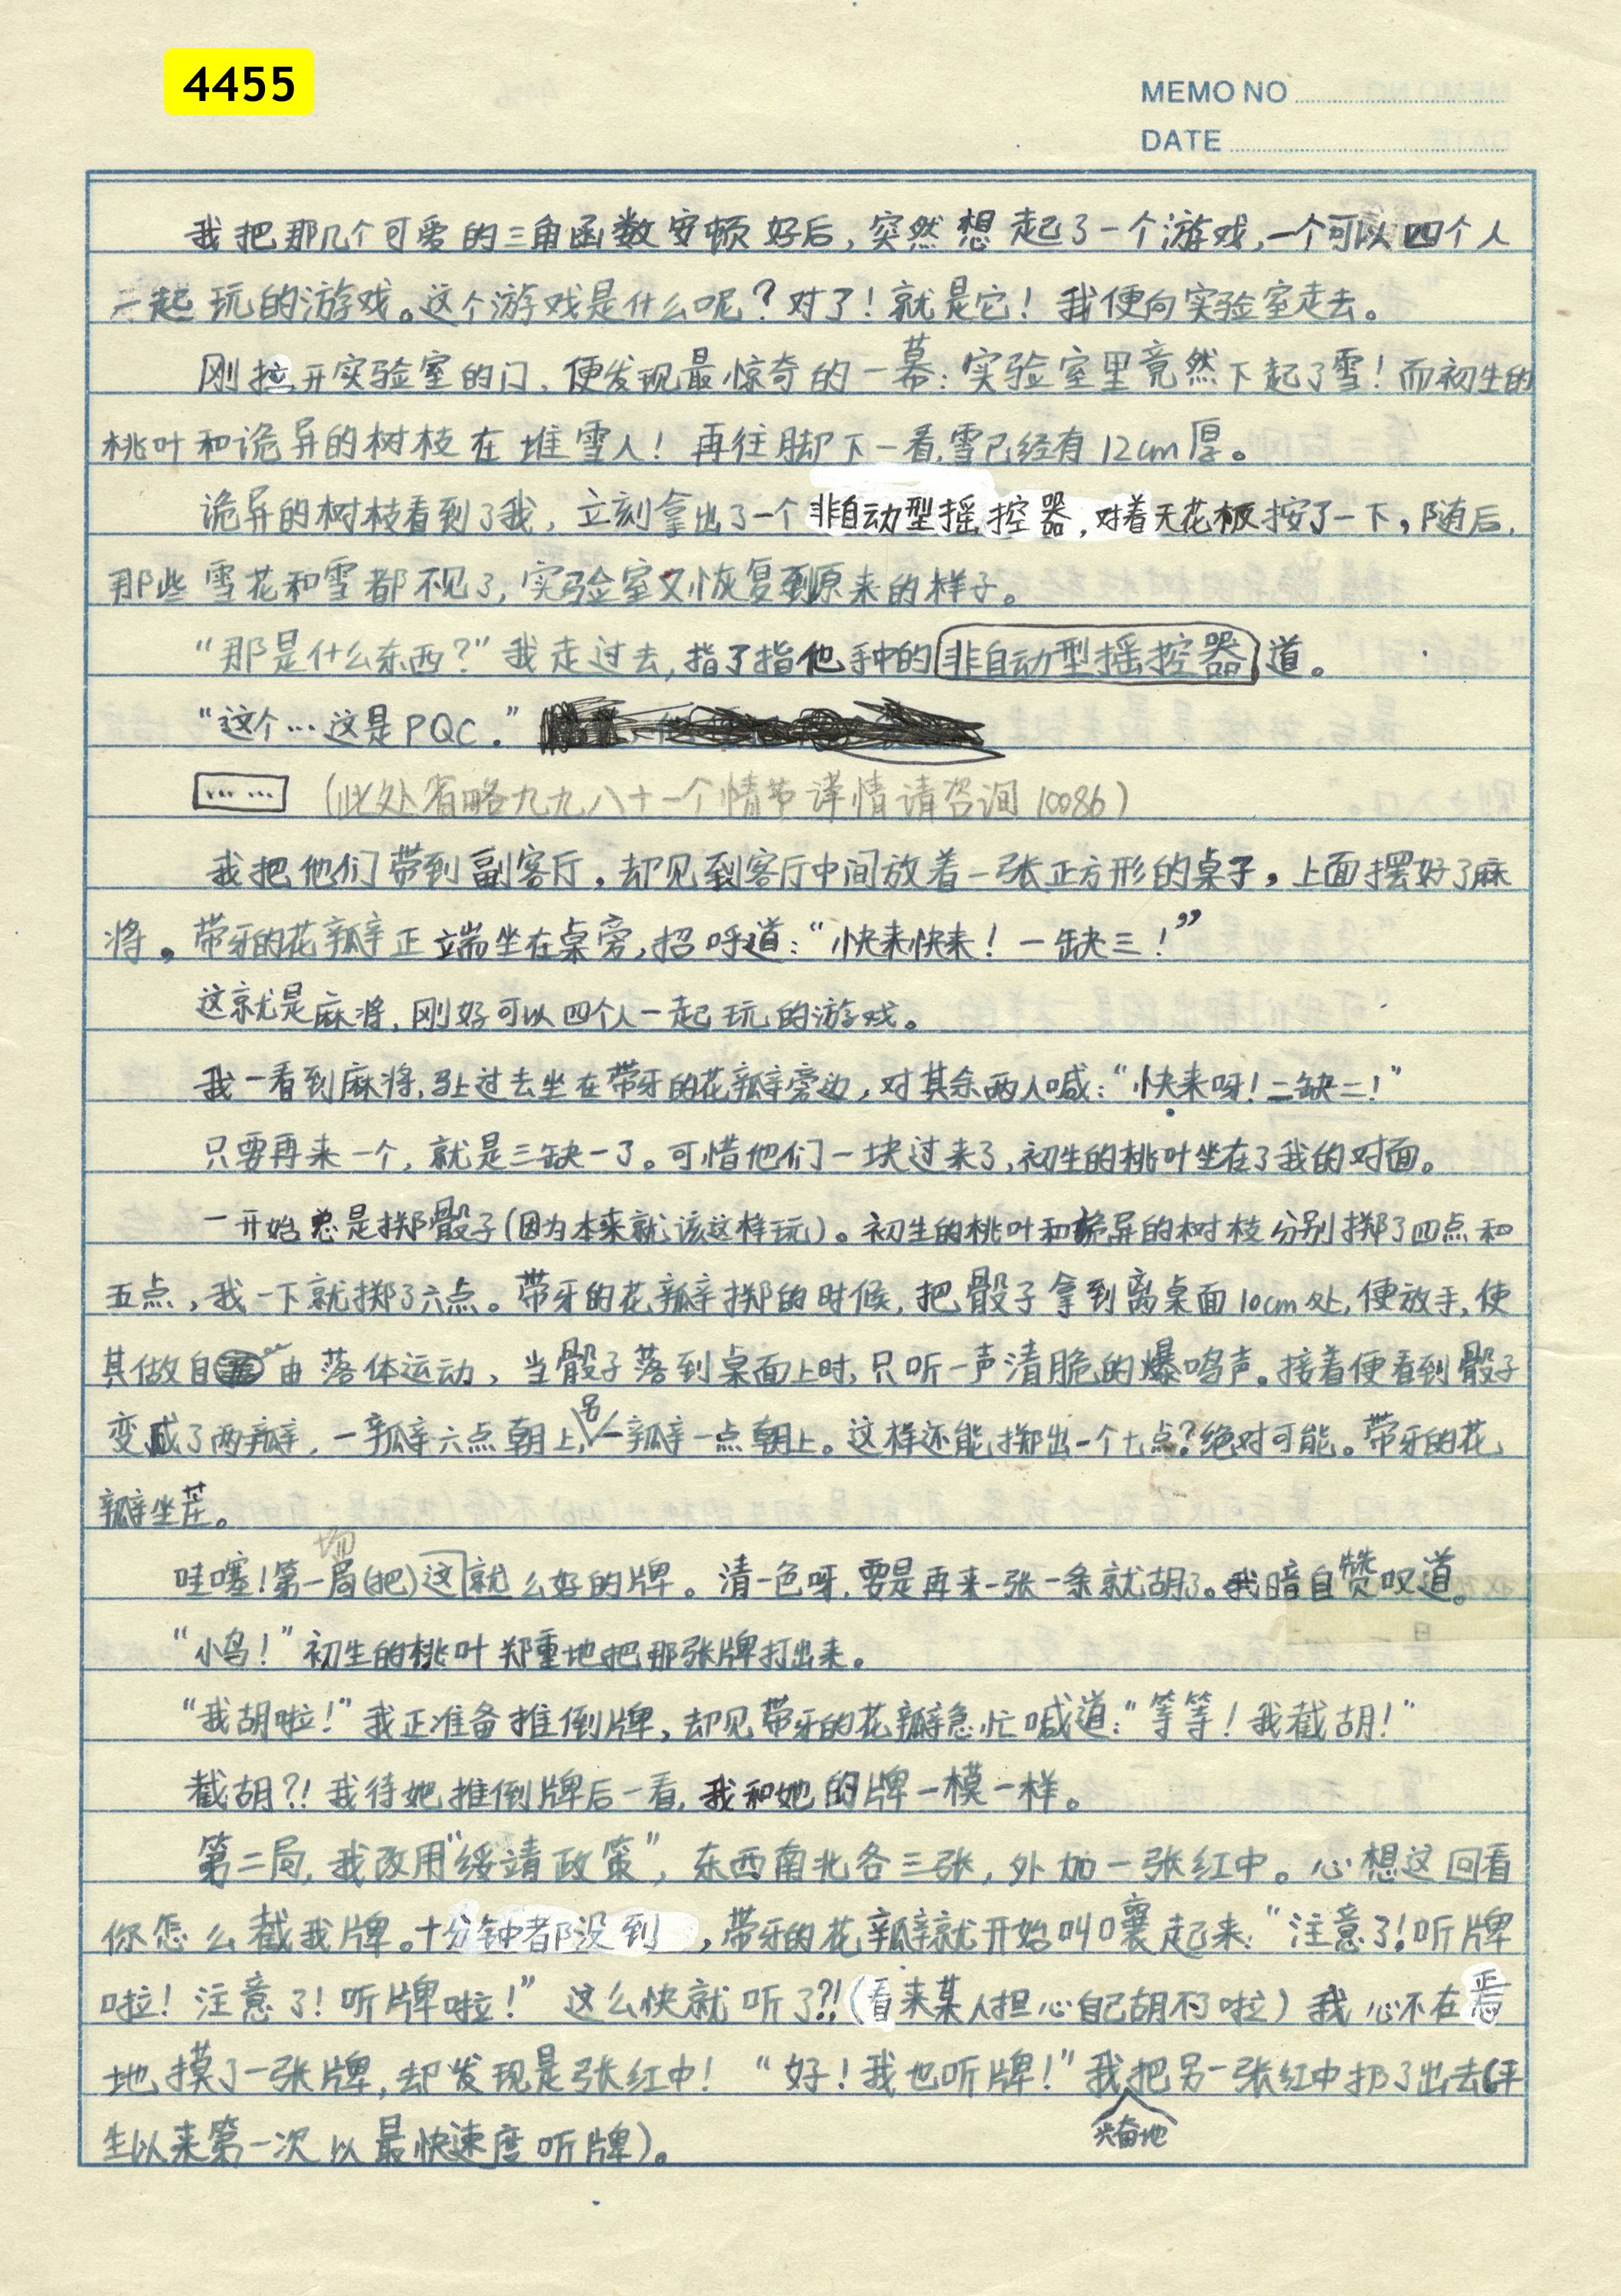 4455
MEMO NO
DATE
我把那几个可爱的三角函数安顿好后，突然想起了一个游戏，一个可以四个人
一起玩的游戏。这个游戏是什么呢？对了！就是它！我便向实验室走去。
刚拉开实验室的门，便发现最惊奇的一幕：实验室里竟然下起了雪！而初生的
桃叶和诡异的树枝在堆雪人！再往脚下一看，雪已经有12cm厚。
诡异的树枝看到了我，立刻拿出了一个非自动型摇控器，对着天花板按了一下，随后，
那些雪花和雪都不见了，实验室又恢复到原来的样子。
“那是什么东西？”我走过去，指了指他手中的非自动型摇控器道。
“这个…这是PQC.”
…… （此处省略九九八十一个情节详情请咨询10086）
我把他们带到副客厅，却见到客厅中间放着一张正方形的桌子，上面摆好了麻
将。带牙的花瓣正端坐在桌旁，招呼道：“快来快来！一缺三！”
这就是麻将，刚好可以四个人一起玩的游戏。
我一看到麻将，马上过去坐在带牙的花瓣旁边，对其余两人喊：“快来呀！二缺二！”
只要再来一个，就是三缺一了。可惜他们一块过来了，初生的桃叶坐在了我的对面。
一开始总是掷骰子（因为本来就该这样玩）。初生的桃叶和诡异的树枝分别掷了四点和
五点，我一下就掷了六点。带牙的花瓣掷的时候，把骰子拿到离桌面10cm处，便放手，使
其做自由落体运动，当骰子落到桌面上时，只听一声清脆的爆鸣声。接着便看到骰子
变成了两瓣，一瓣六点朝上，另一瓣一点朝上。这样还能掷出一个七点？绝对可能。带牙的花
瓣坐庄。
场
哇噻！第一局（把）这就么好的牌。清一色呀，要是再来一张一条就胡了。我暗自赞叹道。
“小鸟！”初生的桃叶郑重地把那张牌打出来。
“我胡啦！”我正准备推倒牌，却见带牙的花瓣急忙喊道：“等等！我截胡！”
截胡？！我待她推倒牌后一看，我和她的牌一模一样。
第二局，我改用“绥靖政策”，东西南北各三张，外加一张红中。心想这回看
你怎么截我牌。十分钟都没到，带牙的花瓣就开始叫嚷起来：“注意了！听牌
啦！注意了！听牌啦！”这么快就听了？！（看来某人担心自己胡不了啦）我心不在焉
地摸了一张牌，却发现是张红中！“好！我也听牌！”我兴奋地把另一张红中扔了出去（平
生以来第一次以最快速度听牌）。